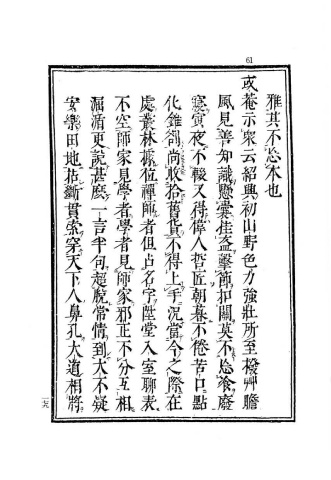 61
雅其不忘本也
或菴示衆云紹興初山野色力強壯所至撥艸瞻
風見善知識懸囊挂盋擊節扣關莫不忘飡廢
寢寅夜不輟又得偉人哲匠朝暮不倦苦口點
化錐劄尚收拾舊貨不得上手況當今之際在
處叢林據位禪師者但占名字陞堂入室聊表
不空師家見學者學者見師家邪正不分互相
更説甚麽一言半句超脫常情到大不疑
安樂田地拈斷貫索穿天下人鼻孔大道相將